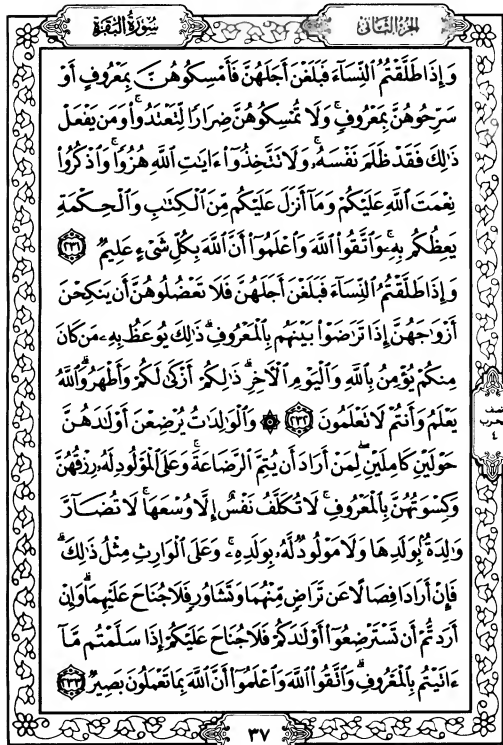 سُورَةُ البَقَرَةِ
الجزء الثاني
وَإِذَا طَلَّقْتُمُ ٱلنِّسَآءَ فَبَلَغْنَ أَجَلَهُنَّ فَأَمْسِكُوهُنَّ بِمَعْرُوفٍ أَوْ
سَرِّحُوهُنَّ بِمَعْرُوفٍۚ وَلَا تُمْسِكُوهُنَّ ضِرَارًا لِّتَعْتَدُوا۟ۚ وَمَن يَفْعَلْ
ذَٰلِكَ فَقَدْ ظَلَمَ نَفْسَهُۥۚ وَلَا تَتَّخِذُوٓا۟ ءَايَٰتِ ٱللَّهِ هُزُوًاۚ وَٱذْكُرُوا۟
نِعْمَتَ ٱللَّهِ عَلَيْكُمْ وَمَآ أَنزَلَ عَلَيْكُم مِّنَ ٱلْكِتَٰبِ وَٱلْحِكْمَةِ
يَعِظُكُم بِهِۦۚ وَٱتَّقُوا۟ ٱللَّهَ وَٱعْلَمُوٓا۟ أَنَّ ٱللَّهَ بِكُلِّ شَىْءٍ عَلِيمٌ ٢٣١
وَإِذَا طَلَّقْتُمُ ٱلنِّسَآءَ فَبَلَغْنَ أَجَلَهُنَّ فَلَا تَعْضُلُوهُنَّ أَن يَنكِحْنَ
أَزْوَٰجَهُنَّ إِذَا تَرَٰضَوْا۟ بَيْنَهُم بِٱلْمَعْرُوفِۗ ذَٰلِكَ يُوعَظُ بِهِۦ مَن كَانَ
مِنكُمْ يُؤْمِنُ بِٱللَّهِ وَٱلْيَوْمِ ٱلْءَاخِرِۗ ذَٰلِكُمْ أَزْكَىٰ لَكُمْ وَأَطْهَرُۗ وَٱللَّهُ
يَعْلَمُ وَأَنتُمْ لَا تَعْلَمُونَ ٢٣٢ ۞ وَٱلْوَٰلِدَٰتُ يُرْضِعْنَ أَوْلَٰدَهُنَّ
حَوْلَيْنِ كَامِلَيْنِۖ لِمَنْ أَرَادَ أَن يُتِمَّ ٱلرَّضَاعَةَۚ وَعَلَى ٱلْمَوْلُودِ لَهُۥ رِزْقُهُنَّ
وَكِسْوَتُهُنَّ بِٱلْمَعْرُوفِۚ لَا تُكَلَّفُ نَفْسٌ إِلَّا وُسْعَهَاۚ لَا تُضَآرَّ
وَٰلِدَةٌۢ بِوَلَدِهَا وَلَا مَوْلُودٌ لَّهُۥ بِوَلَدِهِۦۚ وَعَلَى ٱلْوَارِثِ مِثْلُ ذَٰلِكَۗ
فَإِنْ أَرَادَا فِصَالًا عَن تَرَاضٍ مِّنْهُمَا وَتَشَاوُرٍ فَلَا جُنَاحَ عَلَيْهِمَاۗ وَإِنْ
أَرَدتُّمْ أَن تَسْتَرْضِعُوٓا۟ أَوْلَٰدَكُمْ فَلَا جُنَاحَ عَلَيْكُمْ إِذَا سَلَّمْتُم مَّآ
ءَاتَيْتُم بِٱلْمَعْرُوفِۗ وَٱتَّقُوا۟ ٱللَّهَ وَٱعْلَمُوٓا۟ أَنَّ ٱللَّهَ بِمَا تَعْمَلُونَ بَصِيرٌ ٢٣٣
نصف
الحزب
٤
٣٧